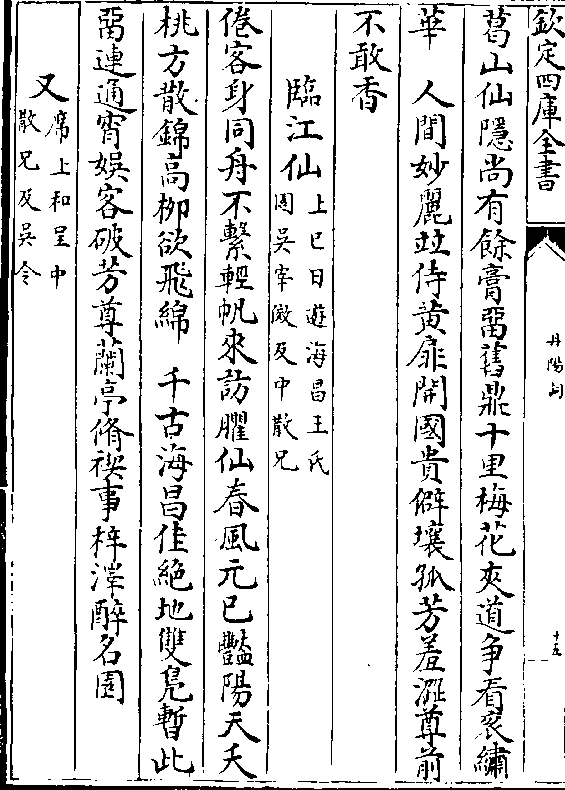 欽定四庫全書
丹陽詞
十五
葛山仙隱尚有餘膏畱舊鼎十里梅花夾道爭看衮繡
華　人間妙麗竝侍黄扉開國貴僻壤孤芳羞澀尊前
不敢香
臨江仙上巳日遊海昌王氏
園吳宰激及中散兄
倦客身同舟不繫輕帆來訪臞仙春風元巳豔陽天夭
桃方散錦高栁欲飛綿　千古海昌佳絶地雙凫暫此
畱連通宵娯客破芳尊蘭亭脩禊事梓澤醉名園
又席上和呈中
散兄及吳令